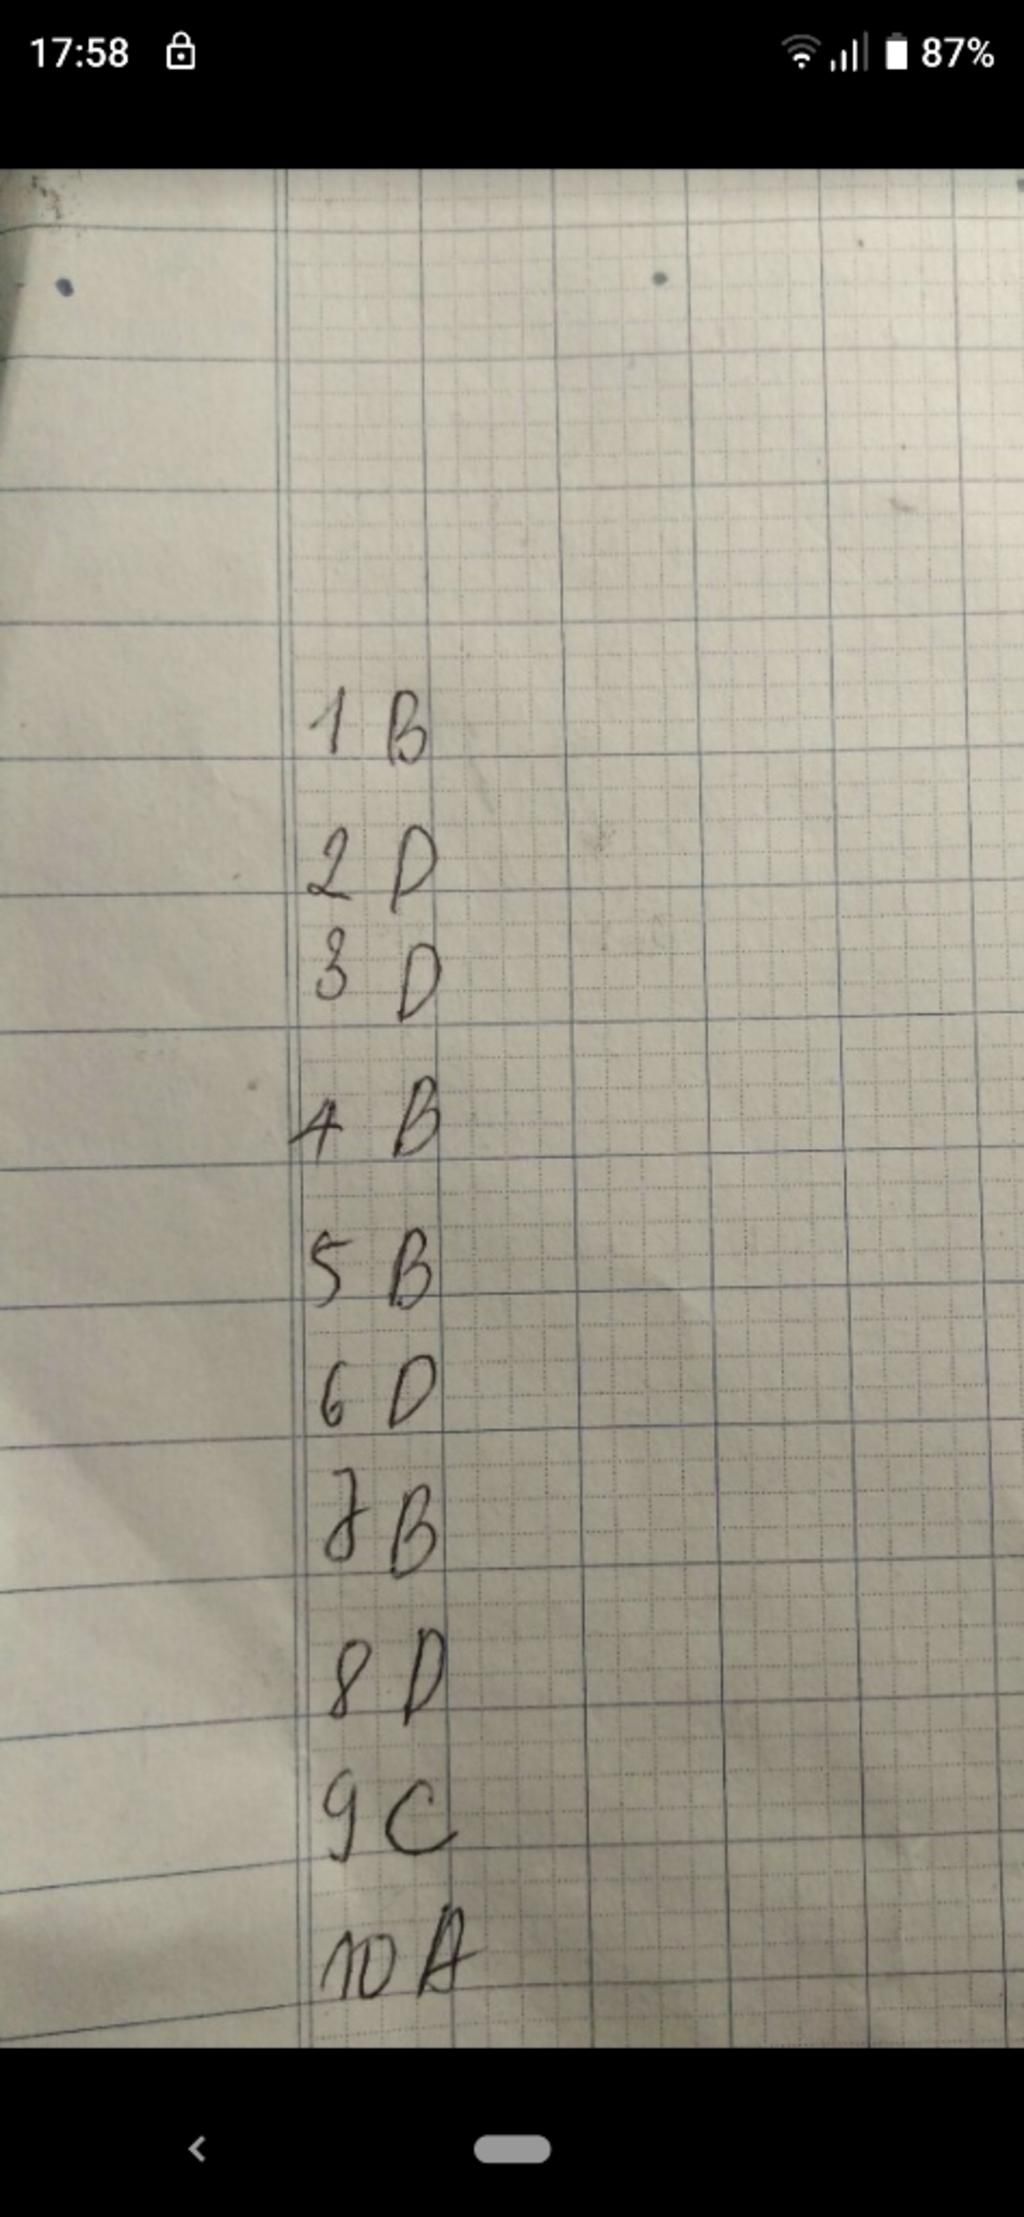 17:58 87%
1 B
2 D
3 D
4 B
5 B
6 D
7 B
8 D
9 C
10 A